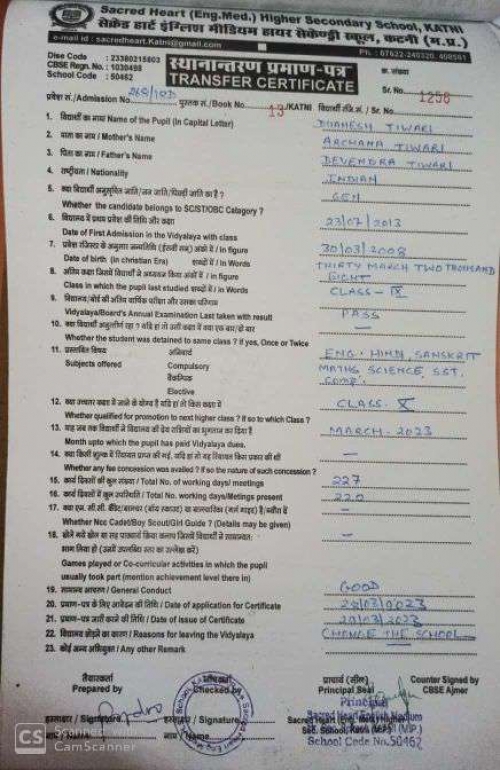 Sacred Heart (Eng.Med.) Higher Secondary School, KATNI
सेक्रेड हार्ट इंग्लिश मीडियम हायर सेकेण्ड्री स्कूल, कटनी (म.प्र.)
e-mail id : sacredheart.Katni@gmail.com
Ph. : 07622-240320, 408591
Dise Code : 23380215803
CBSE Regn. No. : 1030498
School Code : 50462
स्थानान्तरण प्रमाण-पत्र
TRANSFER CERTIFICATE
क्र. संख्या
Sr. No. 1256
प्रवेश सं./Admission No. पुस्तक सं./Book No. 13 /KATNI विद्यार्थी रजि.नं. / Sr. No.
1. विद्यार्थी का नाम/ Name of the Pupil (In Capital Letter) DHANESH TIWARI
2. माता का नाम / Mother's Name ARCHANA TIWARI
3. पिता का नाम / Father's Name DEVENDRA TIWARI
4. राष्ट्रीयता / Nationality INDIAN
5. क्या विद्यार्थी अनुसूचित जाति/जन जाति/पिछड़ी जाति का है ? GEN
Whether the candidate belongs to SC/ST/OBC Catagory ?
6. विद्यालय में प्रथम प्रवेश की तिथि और कक्षा 23/07/2013
Date of First Admission in the Vidyalaya with class
7. प्रवेश रजिस्टर के अनुसार जन्मतिथि (ईसवी सन्) अंकों में / In figure 30/03/2008
Date of birth (In christian Era) शब्दों में / In Words THIRTY MARCH TWO THOUSAND
8. अंतिम कक्षा जिसमें विद्यार्थी ने अध्ययन किया अंकों में / In figure EIGHT
Class in which the pupil last studied शब्दों में / In Words CLASS - IX
9. विद्यालय/बोर्ड की अंतिम वार्षिक परीक्षा और उसका परिणाम
Vidyalaya/Board's Annual Examination Last taken with result PASS
10. क्या विद्यार्थी अनुत्तीर्ण रहा ? यदि हाँ तो उसी कक्षा में क्या एक बार/दो बार —
Whether the student was detained to same class ? if yes, Once or Twice
11. प्रस्तावित विषय अनिवार्य ENG. HINDI, SANSKRIT
Subjects offered Compulsory MATHS SCIENCE, SST,
वैकल्पिक COMP.
Elective
12. क्या उच्चतर कक्षा में जाने के योग्य है यदि हाँ तो किस कक्षा में CLASS. X
Whether qualified for promotion to next higher class ? If so to which Class ?
13. माह जब तक विद्यार्थी ने विद्यालय की देय राशियों का भुगतान कर दिया है MARCH - 2023
Month upto which the pupil has paid Vidyalaya dues.
14. क्या किसी शुल्क में रियायत प्राप्त की गई, यदि हाँ तो यह रियायत किस प्रकार की थी —
Whether any fee concession was availed ? If so the nature of such concession ?
15. कार्य दिवसों की कुल संख्या / Total No. of working days/ meetings 227
16. कार्य दिवसों में कुल उपस्थिति / Total No. working days/Metings present 220
17. क्या एन. सी. सी. कैडेट/बालचर (बॉय स्काउट) या बालचारिका (गर्ल गाइड) है/ब्यौरा दें —
Whether Ncc Cadet/Boy Scout/Girl Guide ? (Details may be given)
18. खेले गये खेल या सह पाठ्यचर्या क्रिया कलाप जिनमें विद्यार्थी ने सामान्यतः —
भाग लिया हो (उसमें उपलब्धि स्तर का उल्लेख करें)
Games played or Co-curricular activities in which the pupil
usually took part (mention achievement level there in)
19. सामान्य आचरण / General Conduct GOOD
20. प्रमाण-पत्र के लिए आवेदन की तिथि / Date of application for Certificate 28/03/2023
21. प्रमाण-पत्र जारी करने की तिथि / Date of issue of Certificate 29/03/2023
22. विद्यालय छोड़ने का कारण / Reasons for leaving the Vidyalaya CHANGE THE SCHOOL
23. कोई अन्य अभियुक्त / Any other Remark —
तैयारकर्ता
Prepared by
Checked by
प्राचार्य (सील)
Principal Seal
Counter Signed by
CBSE Ajmer
Principal
हस्ताक्षर / Signature
हस्ताक्षर / Signature
Sacred Heart English Medium
Sec. School, Katni (M.P.)
School Code No. 50462
नाम / Name
CS Scanned with
CamScanner